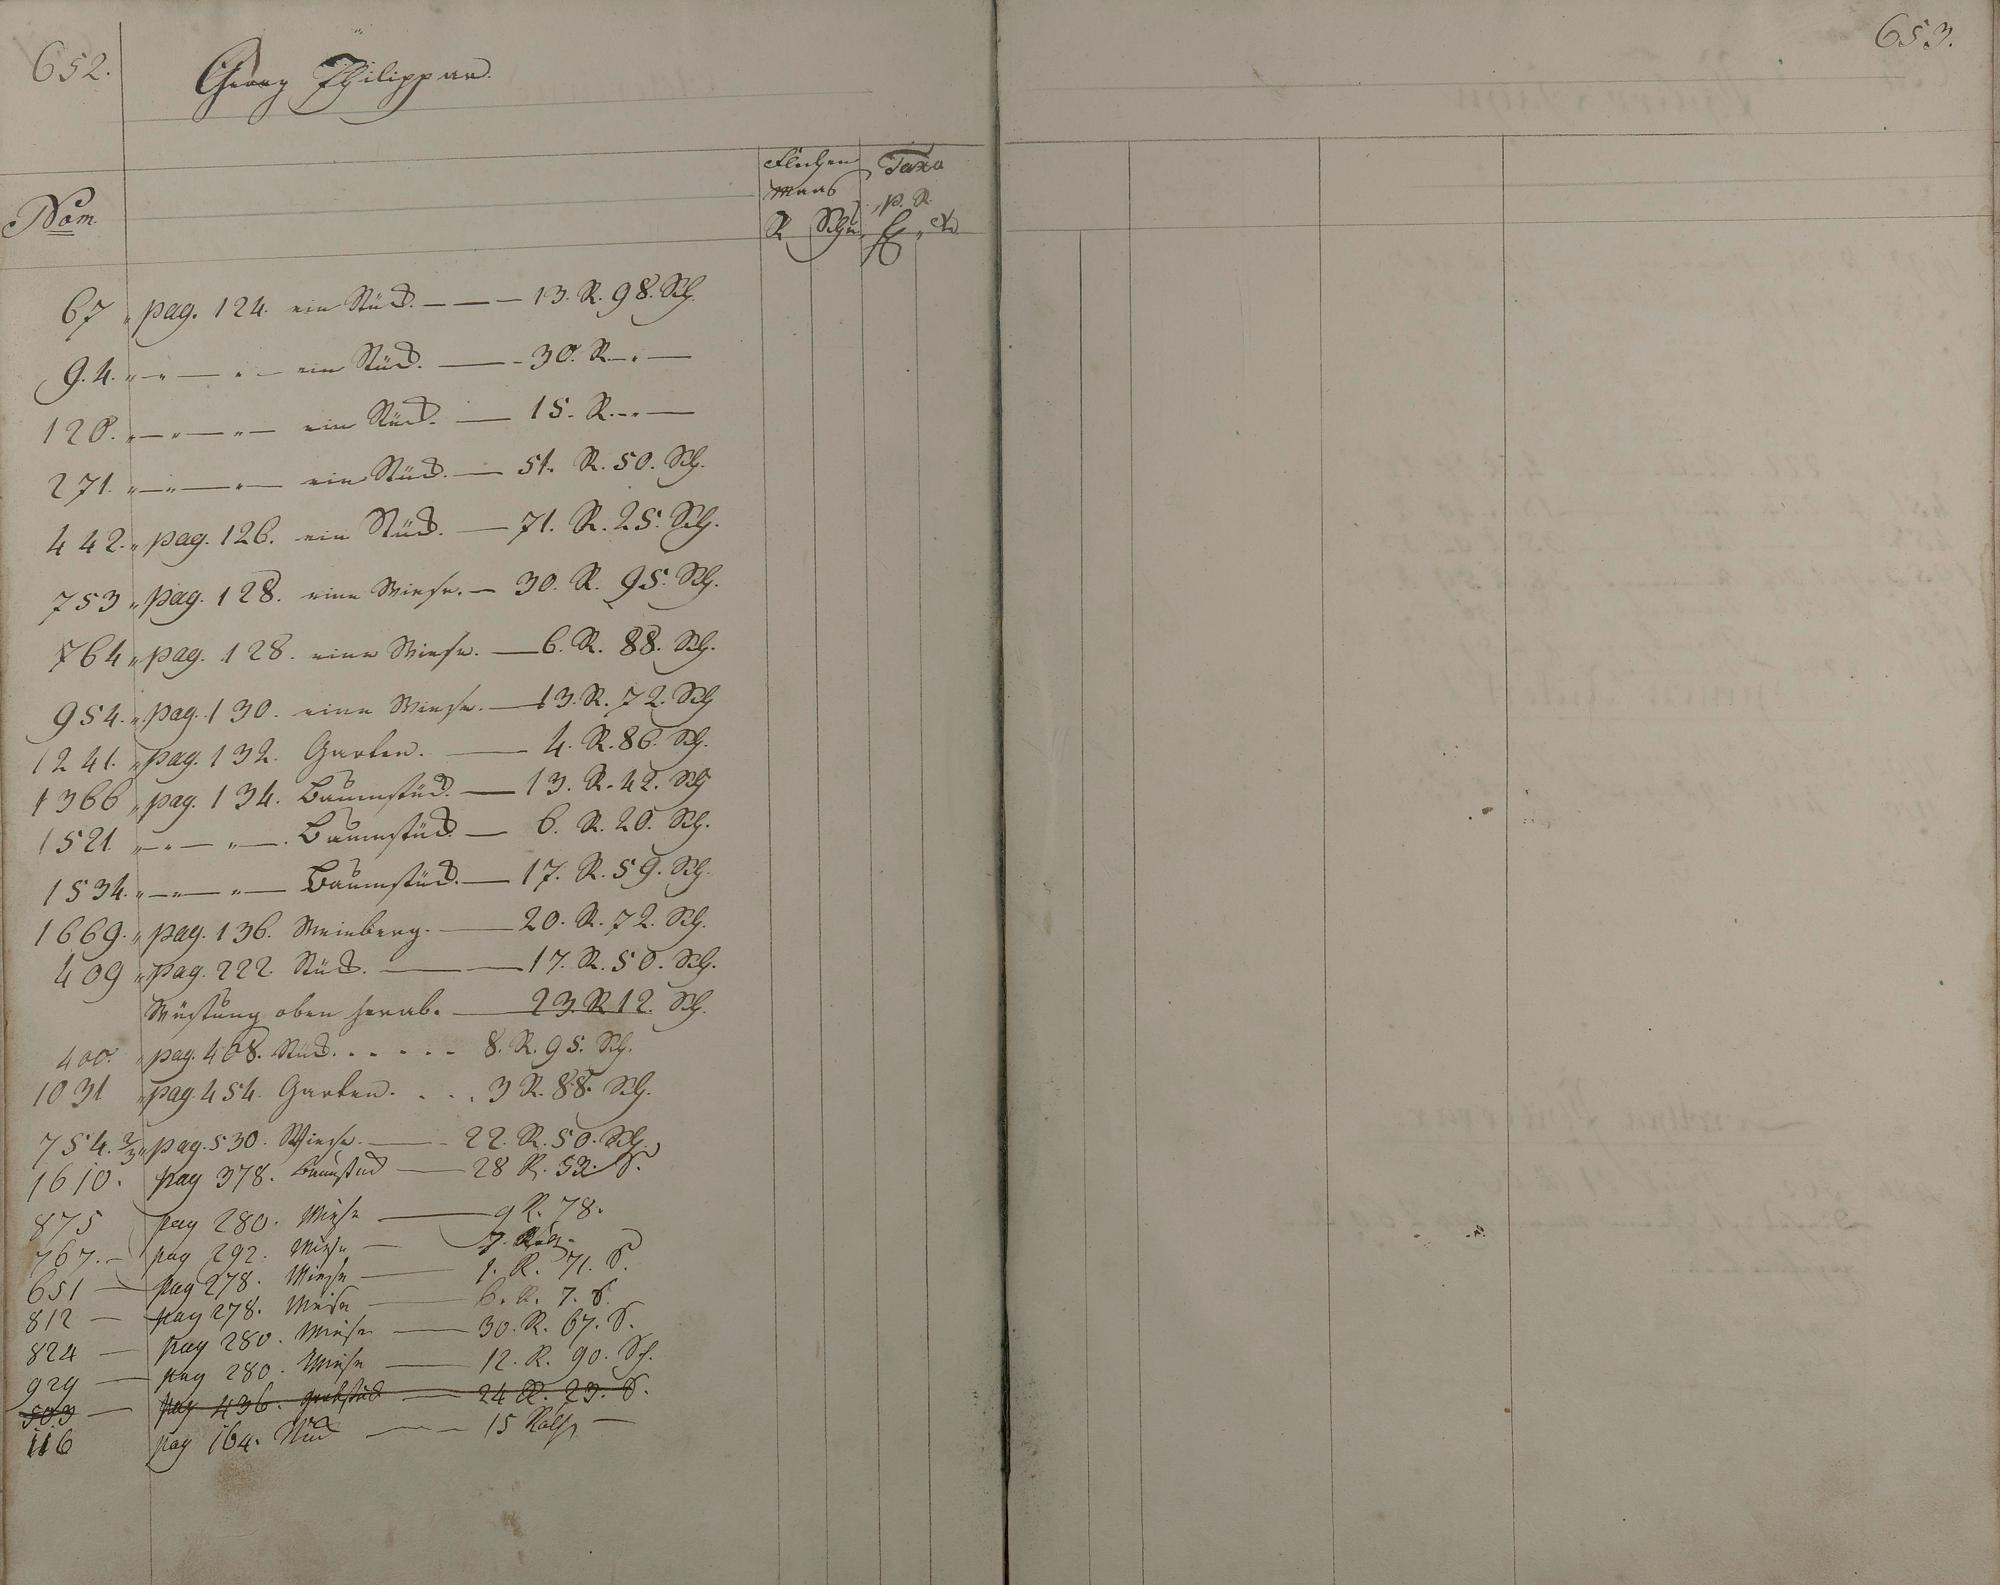 652.
Georg Philippar.
Flechen Taxa
Maas p. R.
Nom. R Schu
67 „ pag. 124. ein Stück. — — — 13. R. 98. Sch.
94. „ — „ — „ — ein Stück. — 30. R. — „ —
120. „ — „ — „ — ein Stück. — 15. R. — „ —
271. „ — „ — „ — ein Stück. — 51. R. 50. Sch.
442. „ pag. 126. ein Stück. — 71. R. 25. Sch.
753 „ pag. 128. eine Wiese. — 30. R. 95. Sch.
764 „ pag. 128. eine Wiese. — 6. R. 88. Sch.
954. „ pag. 130. eine Wiese. — 13. R. 72. Sch
1241. „ pag. 132. Garten. — 4. R. 86. Sch.
1366 „ pag. 134. Baumstück. — 13. R. 42. Sch
1521. „ — „ — „ — Baumstück. — 6. R. 20. Sch.
1534. „ — „ — „ — Baumstück. — 17. R. 59. Sch.
1669. „ pag. 136. Weinberg. — 20. R. 72. Sch.
409 „ pag. 222. Stück. — — 17. R. 50. Sch.
Wüstung oben herab. — 23. R 12. Sch.
400. „ pag. 408. Stück. . . . . . 8. R. 95. Sch.
1031 „ pag. 454. Garten. . . . 3 R. 88. Sch.
754. 2/3 „ pag. 530. Wiese. — 22. R. 50. Sch.
1610. pag 378. Baumstück — 28 R. 53. S.
875 pag 280. Wiese — 9 R. 78.
767. — pag 292. Wiese — 7.
651 — pag 278. Wiese — 1. R. 71. S.
812 — pag 278. Wiese — 6. R. 7. S.
824 — pag 280. Wiese — 30. R. 67. S.
929 — pag 280. Wiese — 12. R. 90. Sch.
503 — pag 436. — 24 R. 23. S.
116 pag 164. Stück — 15 Ruth —
653.